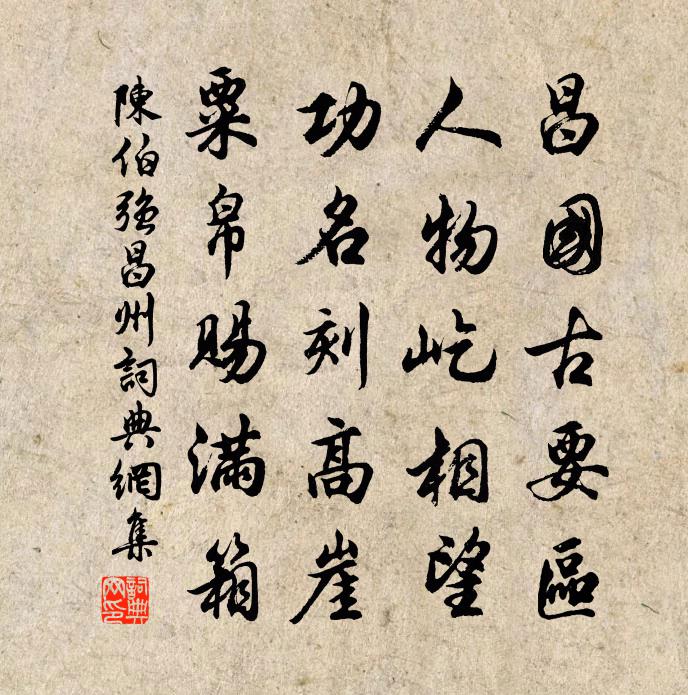 昌國古要區
人物屹相望
功名刻高崖
粟帛賜滿箱
陳伯強昌州詞典網集
詞典網印